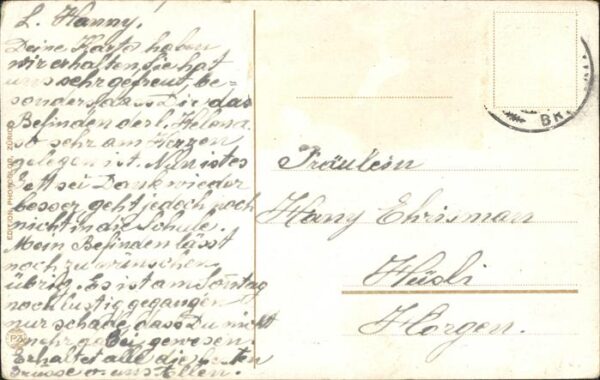 L. Hanny.
Deine Karte haben
wir erhalten, sie hat
uns sehr gefreut, be=
sonders dass Dir das
Befinden der l. Helena
so sehr am Herzen
gelegen ist. Nun ist es
Gott sei Dank wieder
besser geht jedoch noch
nicht in die Schule.
Mein Befinden lässt
noch zu wünschen
übrig. Es ist am Sonntag
noch lustig gegangen
nur schade, dass Du nicht
mehr dabei gewesen.
Erhaltet alle die
Grüsse von uns Allen.
EDITION PHOTOGLOB, ZÜRICH
PZ
Fräulein
Hany Ehrisman
Hüsli
Horgen.